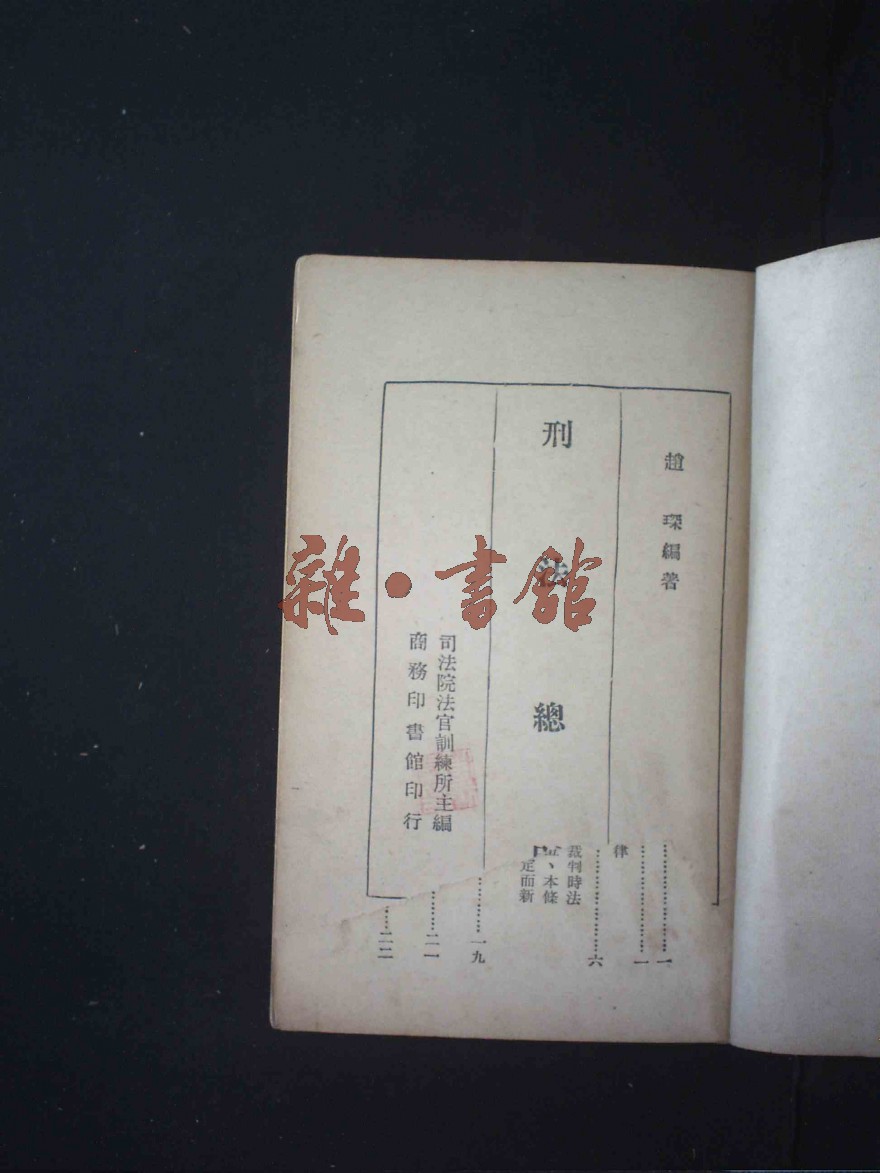 趙琛編著
刑法總
司法院法官訓練所主編
商務印書館印行
雜·書館
一
一
律
六
裁判時法
、本條
定而新
一九
二一
二二